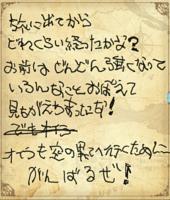 旅に出てから
どれくらい経ったかな?
お前はどんどん強くなって
いろんなことおぼえて
見ちがえちまったな!
でもオイラ
オイラも空の果てへ行くために
がんばるぜ!